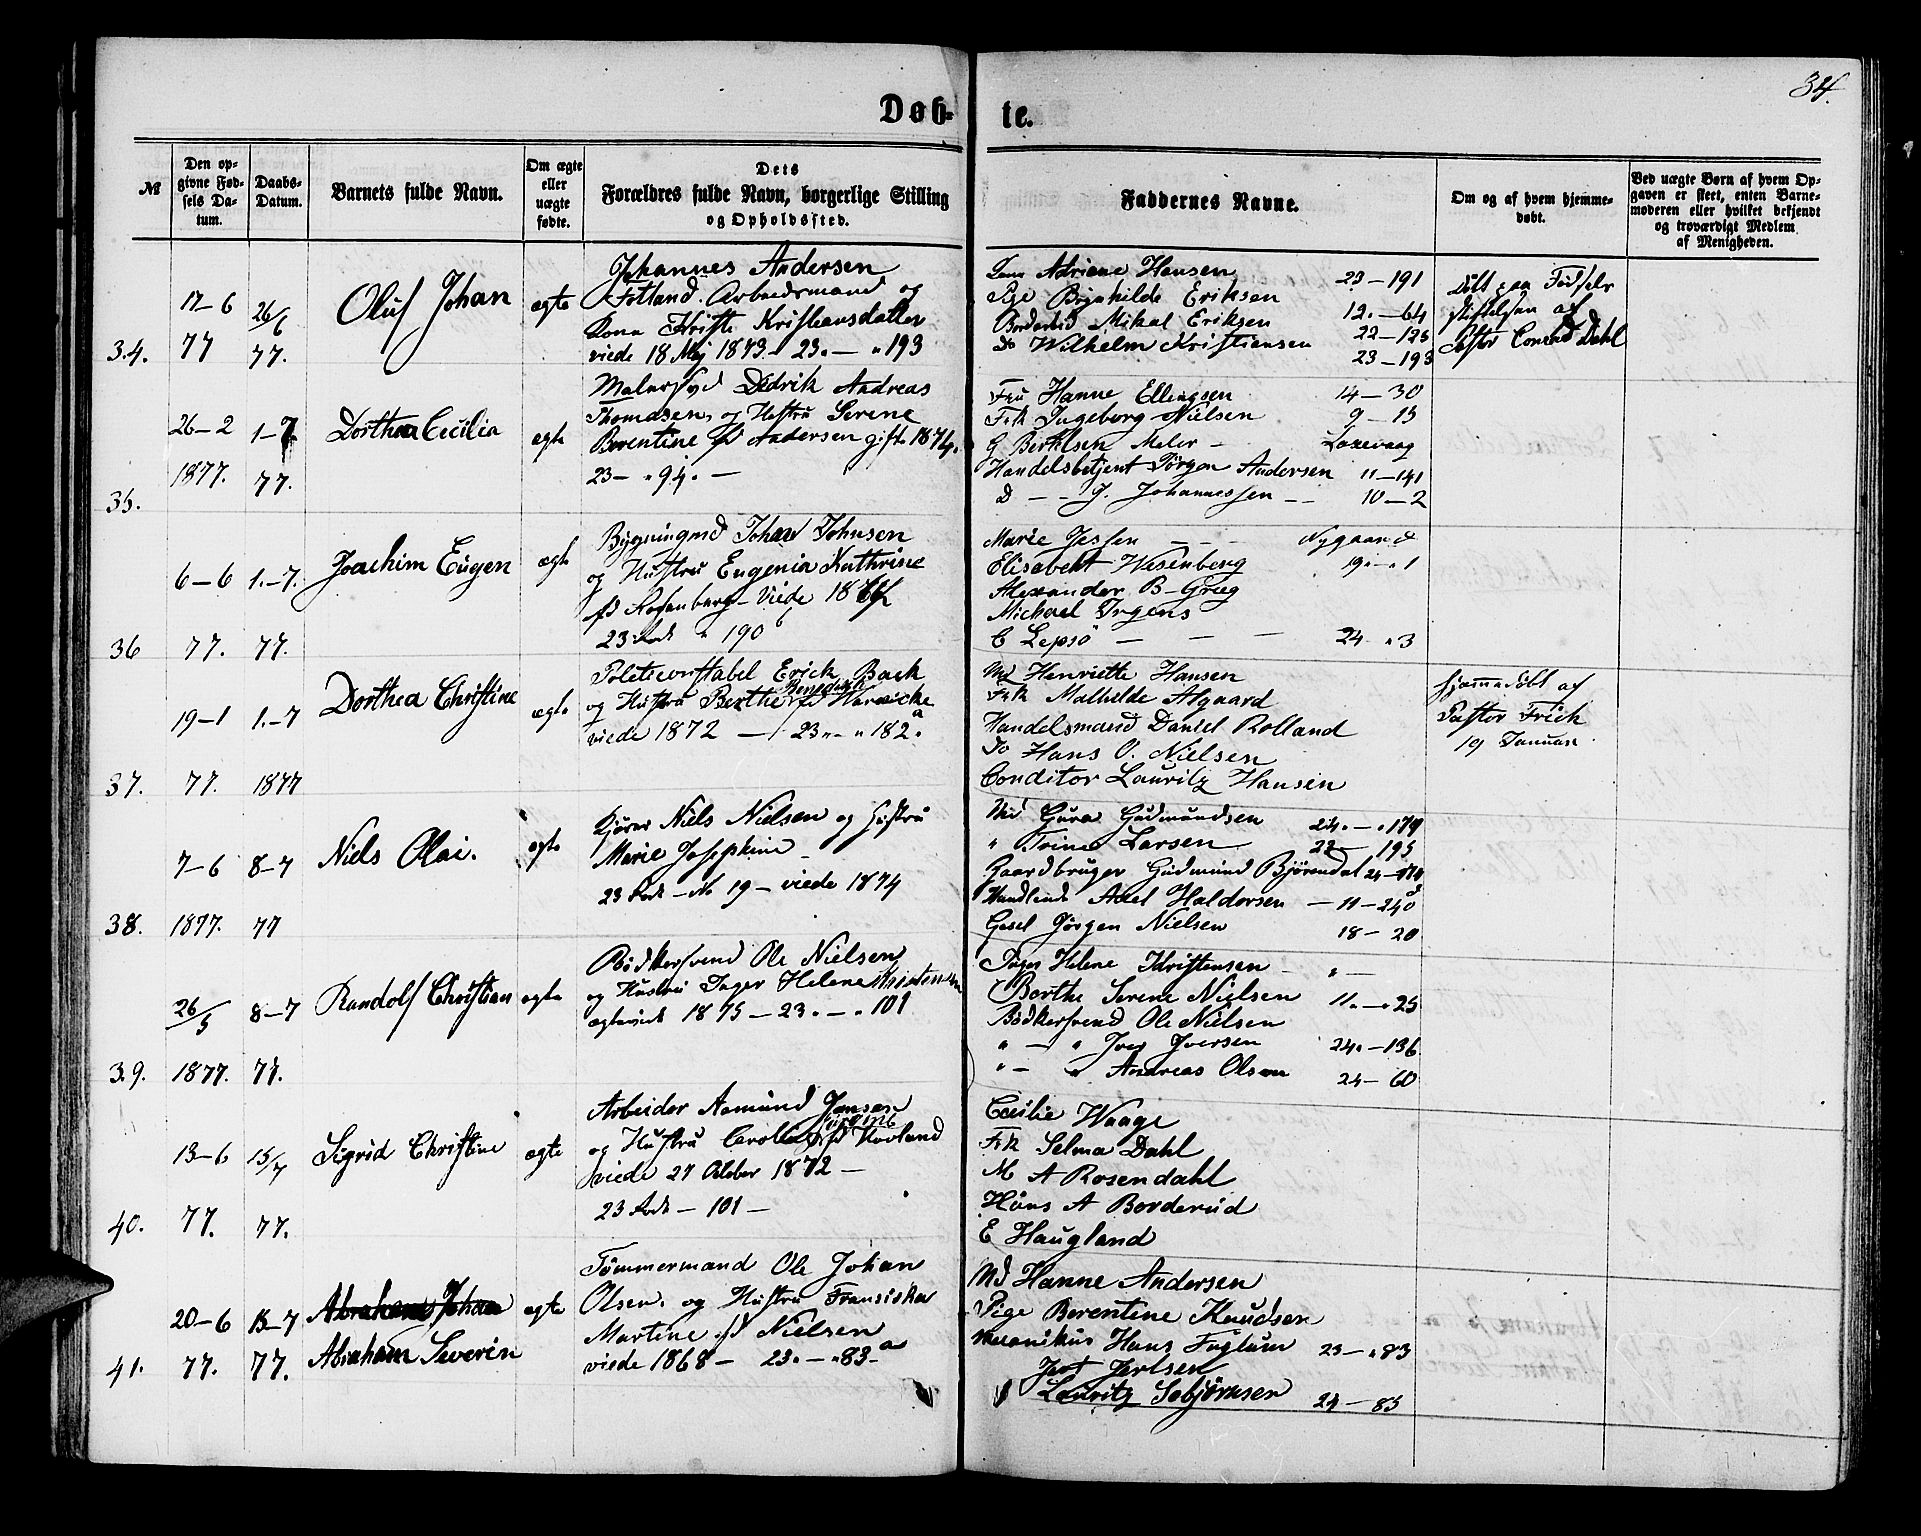 34.
Døb-
te.
№
Den op-
givne Fød-
sels Da-
tum.
Daabs-
Datum.
Barnets fulde Navn.
Om ægte
eller
uægte
fødte.
Dets
Forældres fulde Navn, borgerlige Stilling
og Opholdssted.
Faddernes Navne.
Om og af hvem hjemme-
døbt.
Ved uægte Børn af hvem Op-
gaven er skeet, enten Barne-
moderen eller hvilket bekjendt
og troværdigt Medlem
af Menigheden.
34.
17-6
77
26/6
77.
Oluf Johan
ægte
Johannes Andersen
Fotland. Arbeidsmand og
Kona Kristi Kristiansdatter
viede 18 Mej 1873. 23. — " 193
Adriane Hansen 23-191
Pige Brynhilde Eriksen 12.-64
Mikal Eriksen 22-125
Do Wilhelm Kristiansen 23-193
Døbt paa Fødsels
stiftelsen af
Pastor Conrad Dahl
35.
26-2
1877.
1-7
77.
Dorthea Cecilia
ægte
Malersvd Didrik Andreas
Thomasen, og Hustru Serene
Berentine fd Andersen gift. 1874.
23- " 94. -
Fru Hanne Ellingsen 14-30
Frk Ingeborg Nielsen 9-15
G Bertelsen Maler - Laxevaag
Handelsbetjent Jørgen Andersen 11-141
D - - J. Johannessen - - 10-2
36
6-6
77.
1.-7.
77.
Joachim Eugen
ægte
Johan Johnsen
og Hustru Eugenia Kathrine
fd Rosenberg - Viede 187
23 Rode " 190
Marie Jessen - - - Nygaard
Elisabeht Wesenberg 19.-"1
Alexander B-Grieg
Michael Irgens
C Lepsö - - - 24 "3
37.
19-1
77.
1.-7
1877
Dorthea Christine
ægte
Politiconstabel Erick Back
og Hustru Berthe Benedikte fd
viede 1872 — 23 " " 182 a
Md Henriette Hansen
Frk Mathilde Algaard
Handelsmand Daniel Rolland
Do Hans O. Nielsen
Conditor Lauritz Hansen
hjemmedöbt af
Pastor Frich
19 Januar
38.
7-6
1877.
8-7
77
Niels Olai.
ægte
Kjører Niels Nielsen og Hustru
Marie Josephine
23 Rode - No 19 - viede 1874
Md Gura Gudmundsen 24.-"179
" Trine Larsen 23-195
Gaardbruger Gudmund Bjørendal 24-179
Axel Haldorsen - 11-240
Gesel Jørgen Nielsen 18-20
39.
26/5
1877.
8-7
77.
Randolf Christian
ægte
Bödkersvend Ole Nielsen
og Hustru Inger Helene Kristensen
ægteviet 1875 - 23. - " 101
Inger Helene Kristensen - " -
Berthe Serene Nielsen 11.-"25
Bödkersvend Ole Nielsen
" - " Iver Iversen 24.-136
" - " Andreas Olsen 24-60
40.
13-6
77.
15/7
77.
Sigrid Christine
ægte
Arbeider Asmund Jensen
og Hustru
viede 27 October 1872 -
23 Rode - 101 -
Cæcilie Waage
Frk Selma Dahl
M A Rosendahl
Hans A Borderud
E Haugland
41.
20-6
77.
15-7
77.
Abraham Johan
Abraham Severin
ægte
Tömmermand Ole Johan
Olsen. og Hustru Fransiska
Martine fd Nielsen
viede 1868 - 23. - "83 a
Md Hanne Andersen
Pige Berentine Knudsen
Mekanikus Hans Fuglum 23-"83
Lauritz Sebjörnsen 24-85